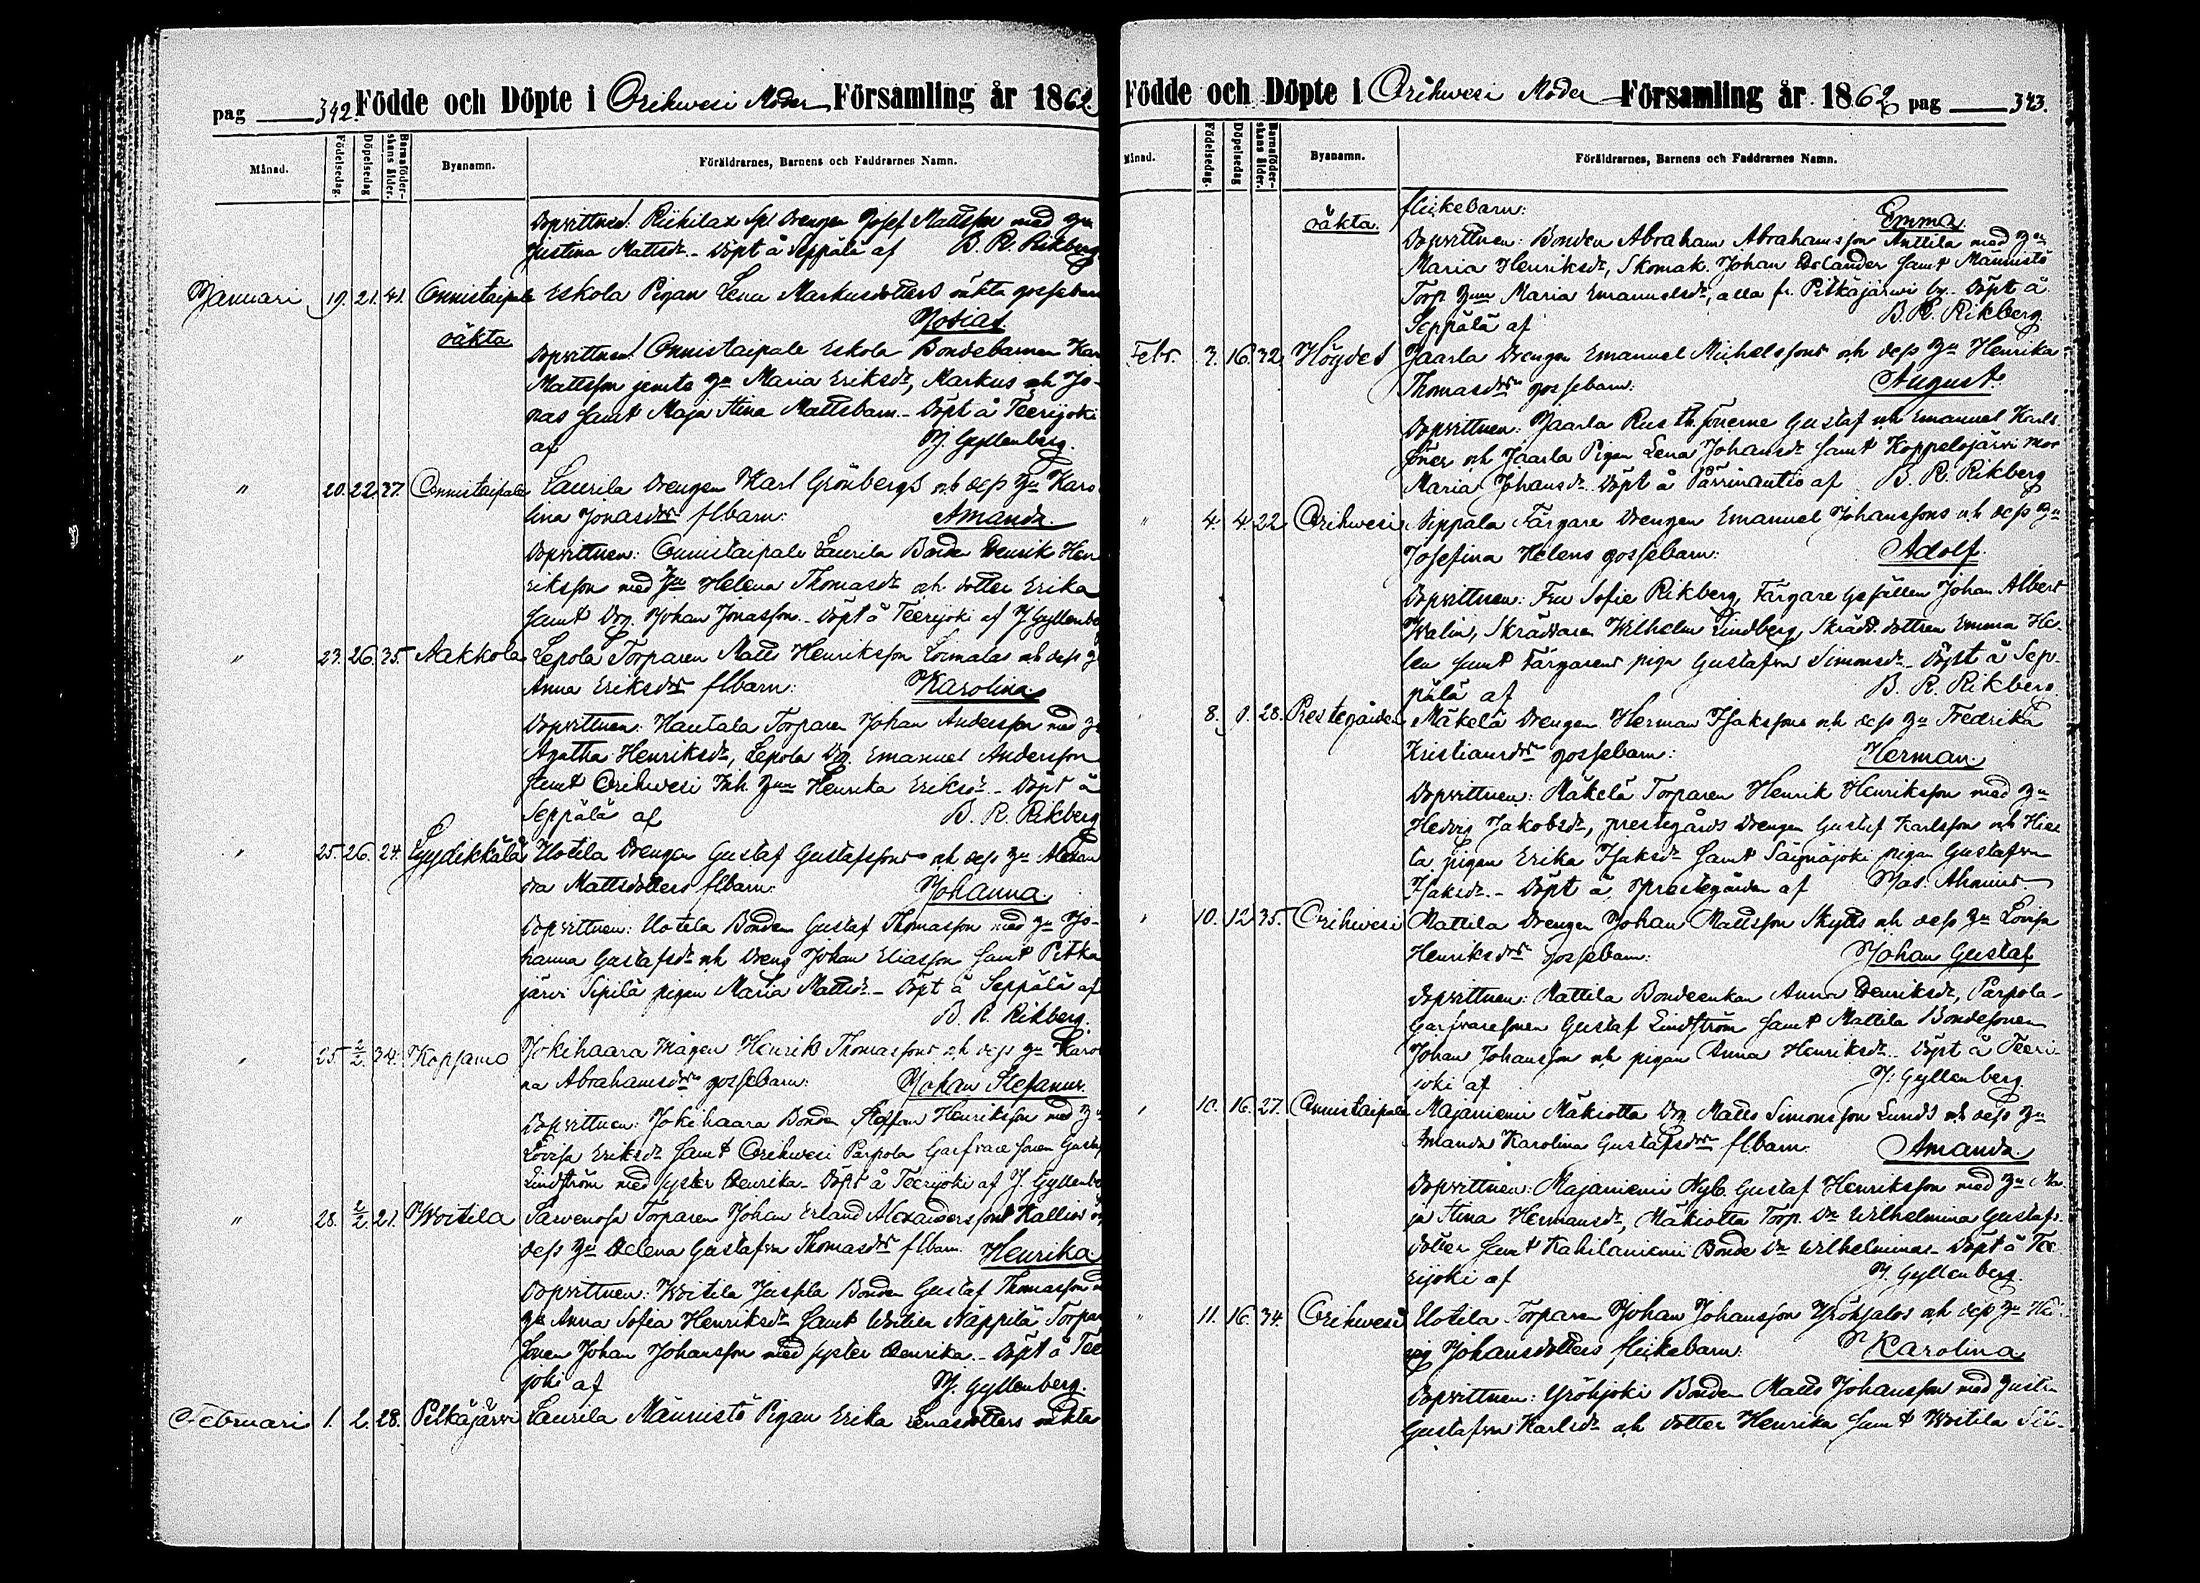 pag 342. Födde och Döpte i Orihwesi Moder Församling år 1862
Månad. Födelsedag. Döpelsedag Barnaföderskans ålder. Byanamn. Föräldrarnes, Barnens och Faddrarnes Namn.
Dopvittnen: Rickilax Spl Drengen Josef Mattsson med hu
Justina Mattsdr. - Döpt å Seppälä af B. R. Rikberg
Januari 19. 21. 41. Onnistaipale Eskola Pigan Lena Markusdotters oäkta gossebarn
oäkta Josias.
Dopvittnen: Onnistaipale Eskola Bondebarnen
Mattsson jemte hu Maria Eriksdr, Markus och Jo-
nas samt Maja Stina Mattsbarn. - Döpt å Teerijoki
af J. Gyllenberg.
" 20. 22. 37. Onnistaipale Laurila Drengen Karl Grönbergs och dess hu Karo
lina Jonasdrs flbarn: Amanda.
Dopvittnen: Onnistaipale Laurila Bonde Henrik Hen
riksson med hu Helena Thomasdr och dotter Erika
samt Drg. Johan Jonasson. - Döpt å Teerijoki af J. Gyllenbe
" 23. 26. 35. Aakkola Lepola Torparen Matts Henriksson och dess
Anna Eriksdrs flbarn: Karolina
Dopvittnen: Hautala Torparen Johan Andersson med
Agatha Henriksdr, Lepola Drg Emanuel Andersson
samt Orihwesi Inh. hu Henrika Eriksdr. - Döpt å
Seppälä af B. R. Rikberg
" 25. 26. 24. Lyydikkälä Uotila Drengen Gustaf Gustafssons och dess hu Alexan
dra Mattsdotters flbarn: Johanna
Dopvittnen: Uotila Bonden Gustaf Thomasson med hu Jo-
hanna Gustafsdr och Dreng Johan Eliasson samt Pitkä
järvi Sipilä pigan Maria Mattsdr - Döpt å Seppälä af
B. R. Rikberg.
" 25. 2/2. 34. Kopsamo Jokihaara Mågen Henrik Thomassons och dess hu Karo
na Abrahamsdrs gossebarn: Johan Stefanus.
Dopvittnen: Jokihaara Bonden Steffan Henriksson med hu
Lovisa Eriksdr samt Orihwesi Pärpola Garfvare sonen Gustaf
Lindström med syster Henrika - Döpt å Teerijoki af J. Gyllenbe
" 28. 2/2. 21. Woitila Torparen Johan Erland Alexandersson Kallios
dess hu Helena Gustafva Thomasdrs flbarn: Henrika
Dopvittnen: Woitila Bonden Gustaf Thomasson
hu Anna Sofia Henriksdr samt Woitila Näppilä Torpar
sonen Johan Johansson med syster Henrika. - Döpt å Tee
joki af J. Gyllenberg.
Februari 1. 2. 28. Pitkäjärvi Laurila Männistö Pigan Erika Lenasdotters oäkta
Födde och Döpte i Orihwesi Moder Församling år 1862 pag 343.
Månad. Födelsedag. Döpelsedag Barnaföderskans ålder. Byanamn. Föräldrarnes, Barnens och Faddrarnes Namn.
oäkta. flickebarn: Emma
Dopvittnen: Bonden Abraham Abrahamsson Anttila med hu
Maria Henriksdr, Skomak. Johan samt Männistö
Torp hu Maria Emanuelsdr, alla fr. Pitkäjärwi by. Döpt å
Seppälä af B. R. Rikberg.
Febr. 3. 16. 32. Höydes Jaarla Drengen Emanuel Michelssons och dess hu Henrika
Thomasdrs gossebarn: August.
Dopvittnen: Jaarla sönerne Gustaf och Emanuel Karls
söner och Jaarla Pigan Lena Johansdr samt Koppelojärvi
Maria Johansdr. Döpt å af B. R. Rikberg
" 4. 4. 22. Orihwesi Seppälä Färgare Drengen Emanuel Johanssons och dess hu
Josefina Helens gossebarn: Adolf.
Dopvittnen: Fru Sofie Rikberg, Färgare Gesällen Johan Albert
Walin, Skräddaren Wilhelm Lindberg, Skrädd. dottren Emma He-
len samt Färgarens piga Gustafva Simonsdr - Döpt å Sep-
pälä af B. R. Rikberg
" 8. 9. 28. Prestegården Mäkelä Drengen Herman Isakssons och dess hu Fredrika
Kristiansdrs gossebarn: Herman.
Dopvittnen: Mäkelä Torparen Henrik Henriksson med hu
Hedvig Jakobsdr, prestegårds Drengen Gustaf Karlsson och
pigan Erika Isaksdr samt Säynäjoki pigan Gustafva
Isaksdr. - Döpt å Prestegården af
" 10. 12. 35. Orihwesi Mattila Drengen Johan Mattsson Skytts och dess hu Lovisa
Henriksdrs gossebarn: Johan Gustaf
Dopvittnen: Mattila Bondeenkan Anna Henriksdr, Pärpola-
Garfvaresonen Gustaf Lindström samt Mattila Bondesonen
Johan Johansson och pigan Anna Henriksdr. Döpt å Teeri-
joki af J. Gyllenberg.
" 10. 16. 27. Onnistaipale Majaniemi Mäkiotta Drg Matts Simonsson Lunds och dess hu
Amanda Karolina Gustafsdrs flbarn: Amanda.
Dopvittnen: Majaniemi Nyb. Gustaf Henriksson med hu Ma
ja Stina Hermansdr, Mäkiotta Torp. Dr Wilhelmina Gustafs-
dotter samt Kahilaniemi Bonde Dr Wilhelmina - Döpt å Tee
rijoki af J. Gyllenberg.
" 11. 16. 34. Orihwesi Uotila Torparen Johan Johansson och dess hu Hed
vig Johansdotters flickebarn: Karolina
Dopvittnen: Yröhjoki Bonden Matts Johansson med hustru
Gustafva Karlsdr och dotter Henrika samt Woitila